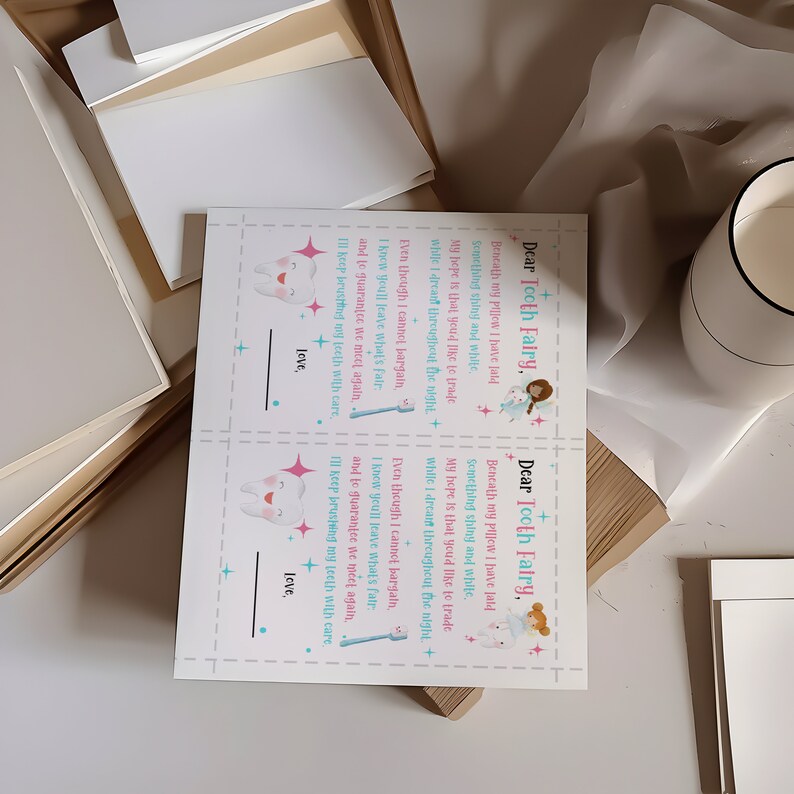 Dear Tooth Fairy,
Beneath my pillow I have laid
something shiny and white,
My hope is that you'd like to trade
while I dream throughout the night.
Even though I cannot bargain,
I know you'll leave what's fair;
and to guarantee we meet again,
I'll keep brushing my teeth with care.
Love,
Dear Tooth Fairy,
Beneath my pillow I have laid
something shiny and white,
My hope is that you'd like to trade
while I dream throughout the night.
Even though I cannot bargain,
I know you'll leave what's fair;
and to guarantee we meet again,
I'll keep brushing my teeth with care.
Love,